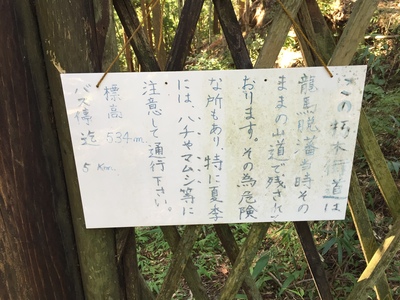 この朽木街道は
龍馬脱藩当時その
ままの山道で残されて
おります。その為危険
な所もあり、特に夏季
には、ハチやマムシ等に
注意して通行下さい。
標高 534m
バス停 迄 5Km